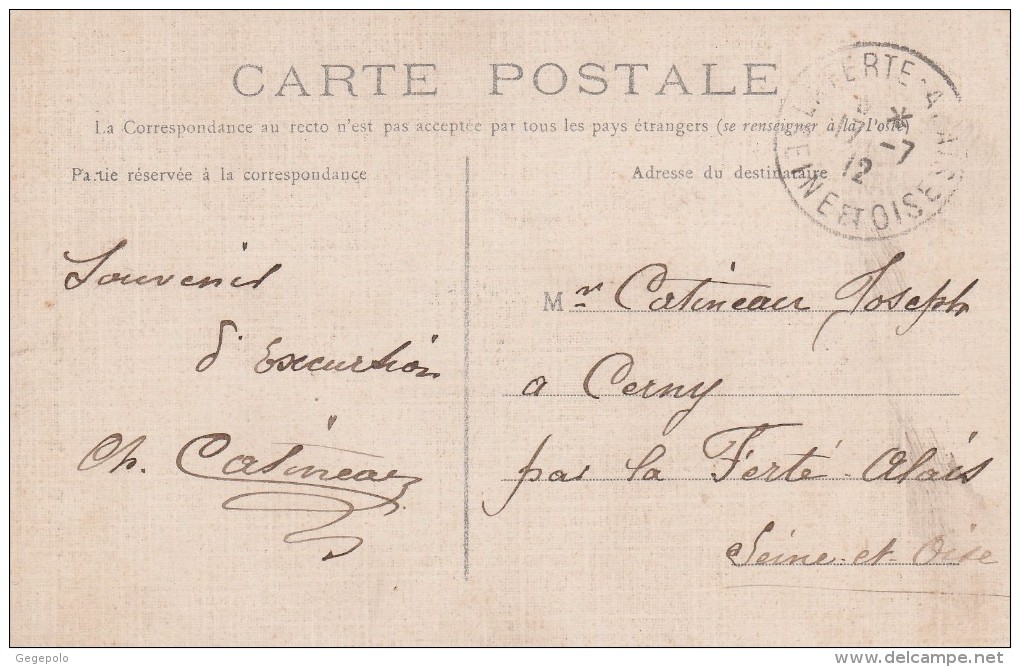 CARTE POSTALE
La Correspondance au recto n'est pas acceptée par tous les pays étrangers (se renseigner à la Poste)
Partie réservée à la correspondance
Adresse du destinataire
LA FERTE-ALAIS
* -7
12
SEINE ET OISE
Souvenir
d'Excurtion
Ch. Catineau
Mr Catineau Joseph
a Cerny
par la Ferté-Alais
Seine-et-Oise
Gegepolo
delcampe.net